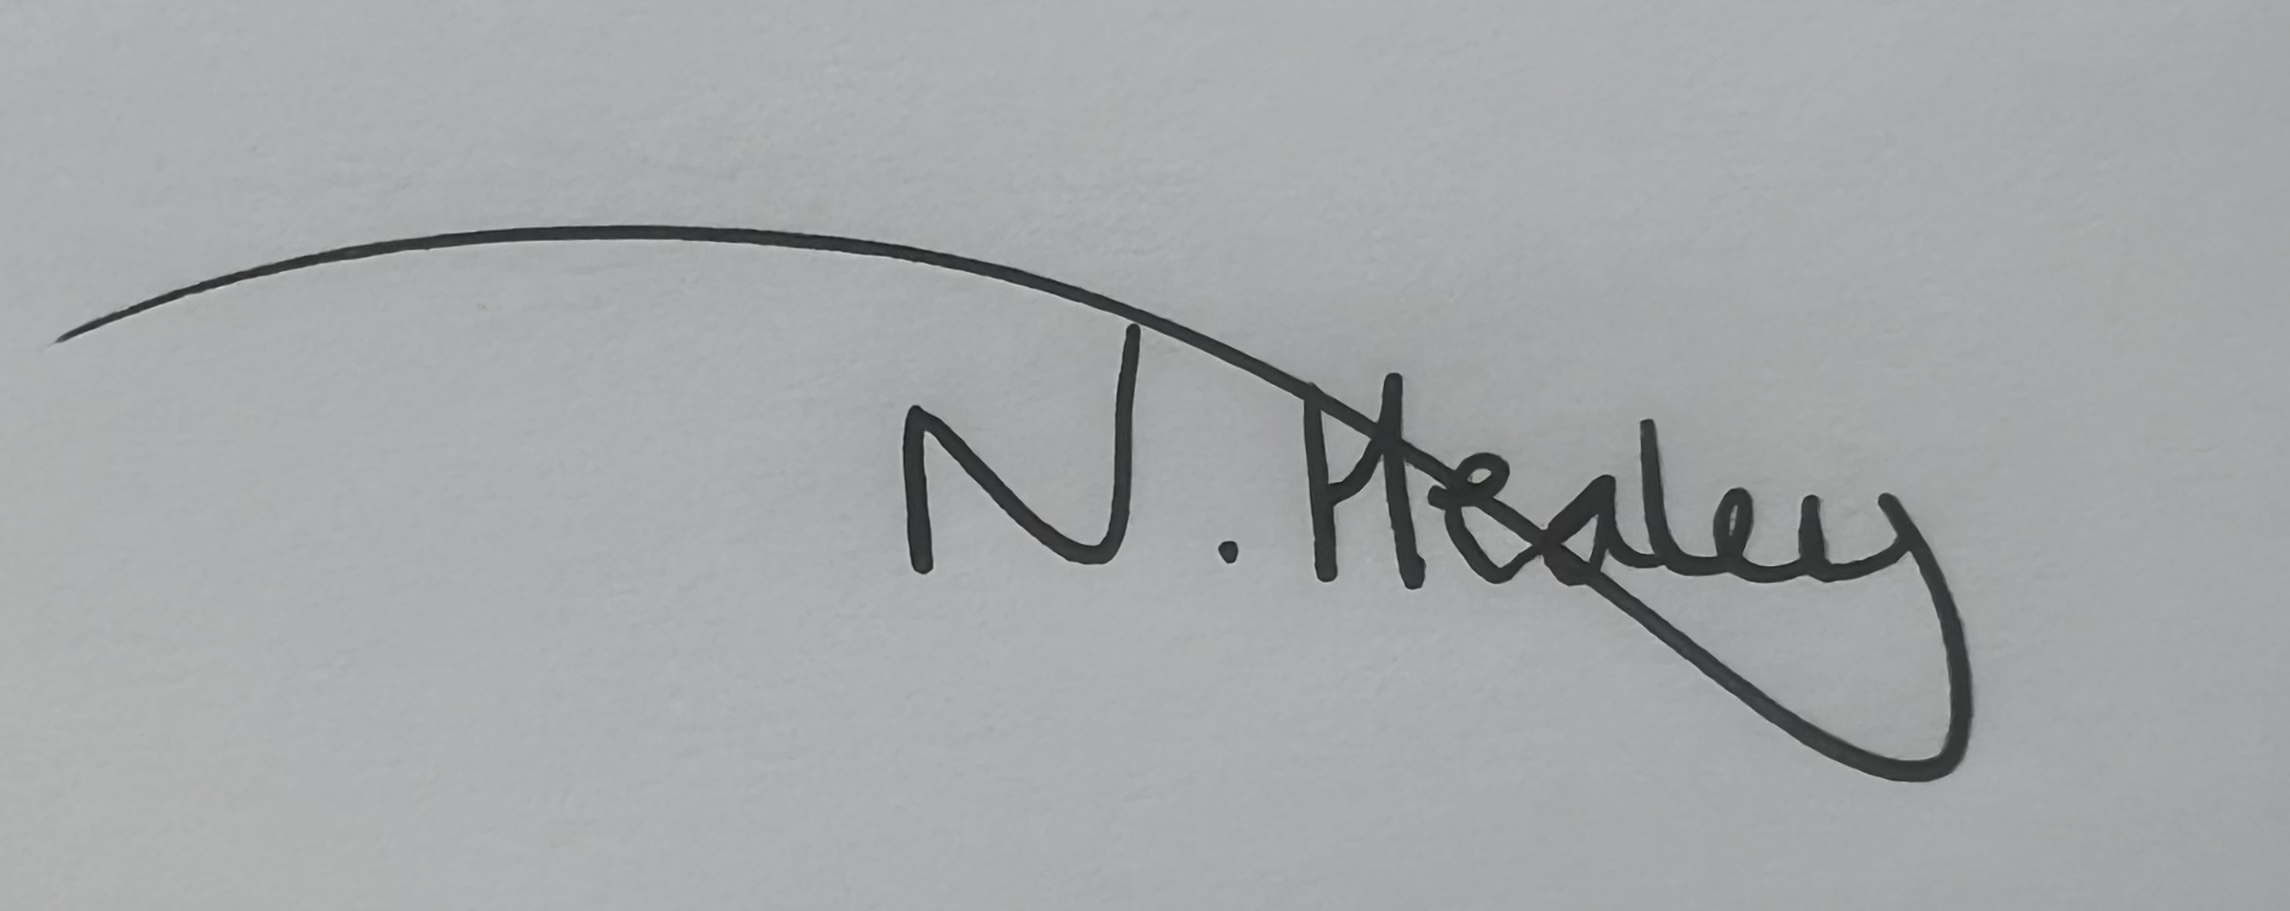 N. Healey